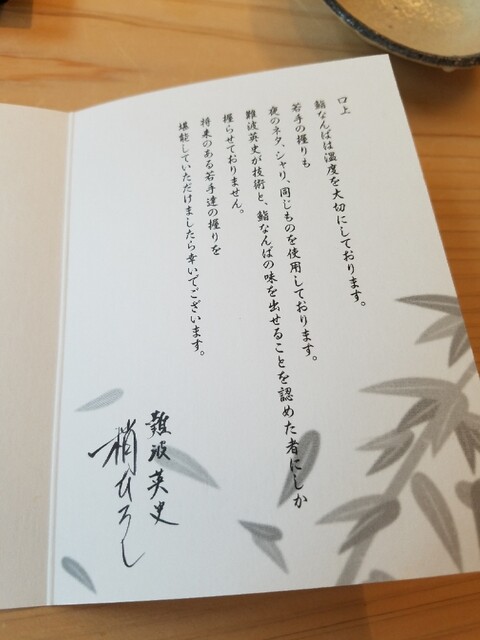 口上
鮨なんばは温度を大切にしております。
若手の握りも
夜のネタ、シャリ、同じものを使用しております。
難波英史が技術と、鮨なんばの味を出せることを認めた者にしか
握らせておりません。
将来のある若手達の握りを
堪能していただけましたら幸いでございます。
難波英史
梢ひろし